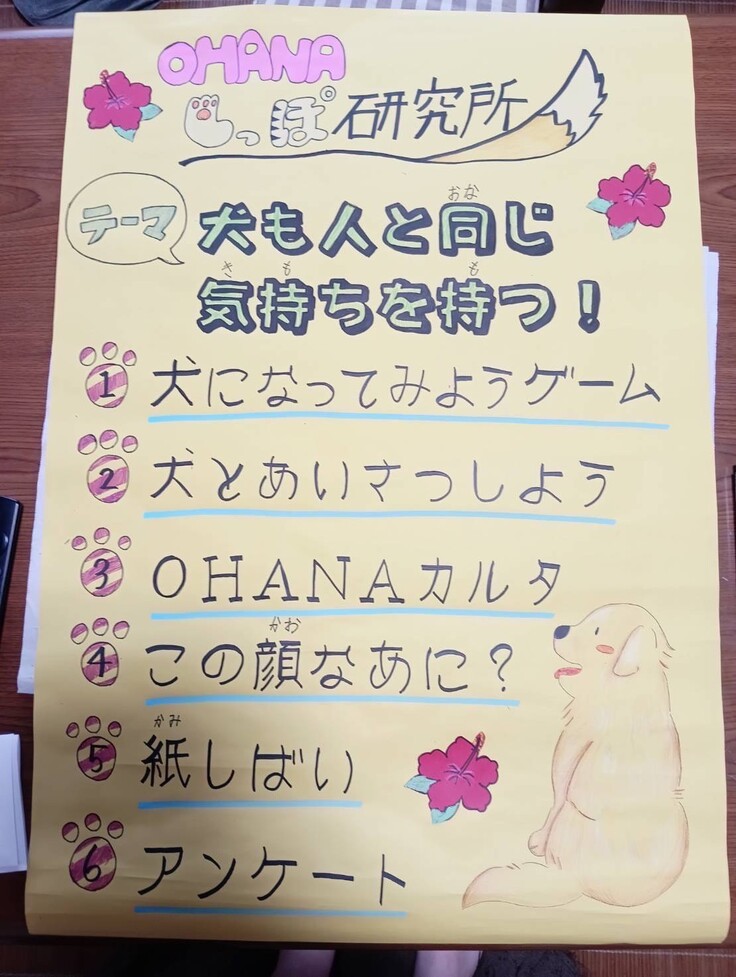 OHANA
しっぽ研究所
テーマ
犬も人と同じ
気持ちを持つ!
おな
きも
も
1 犬になってみようゲーム
2 犬とあいさつしよう
3 OHANAカルタ
4 この顔なあに?
かお
5 紙しばい
かみ
6 アンケート